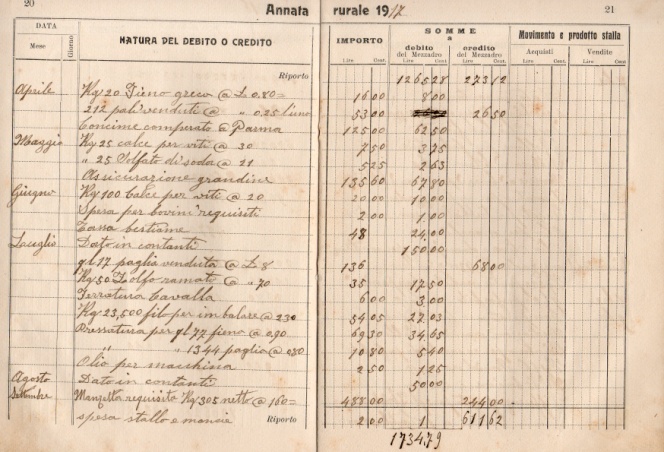 20
Annata rurale 1917
21
DATA
Mese
Giorno
NATURA DEL DEBITO O CREDITO
IMPORTO
Lire Cent.
SOMME
a
debito del Mezzadro
Lire Cent.
credito del Mezzadro
Lire Cent.
Movimento e prodotto stalla
Acquisti
Lire Cent.
Vendite
Lire Cent.
Riporto 1265 28 273 12
Aprile Kg 20 Fieno greco @ £ 0,80= 16 00 8 00
212 pali venduti @ " 0,25 l'uno 53 00 26 50
Concime comperato a Parma 125 00 62 50
Maggio Kg 25 calce per viti @ 30 7 50 3 75
" 25 Solfato di soda @ 21 5 25 2 63
Assicurazione grandine 135 60 67 80
Giugno Kg 100 Calce per viti @ 20 20 00 10 00
Spesa per bovini requisiti 2 00 1 00
Tassa bestiame 48 24 00
Luglio Dato in contanti 150 00
ql 17 paglia venduta @ £ 8 136 68 00
Kg 50 Zolfo ramato @ " 70 35 17 50
Ferratura Cavalla 6 00 3 00
Kg 23,500 filo per imbalare @ 230 54 05 27 03
Pressatura per ql 77 fieno @ 0,90 69 30 34 65
" " 1344 paglia @ 080 10 80 5 40
Olio per macchina 2 50 1 25
Agosto Dato in contanti 50 00
Settembre Manzetta requisita Kg 305 netto @ 160= 488 00 244 00
spesa stallo e mancie 2 00 1
Riporto 611 62
1734.79